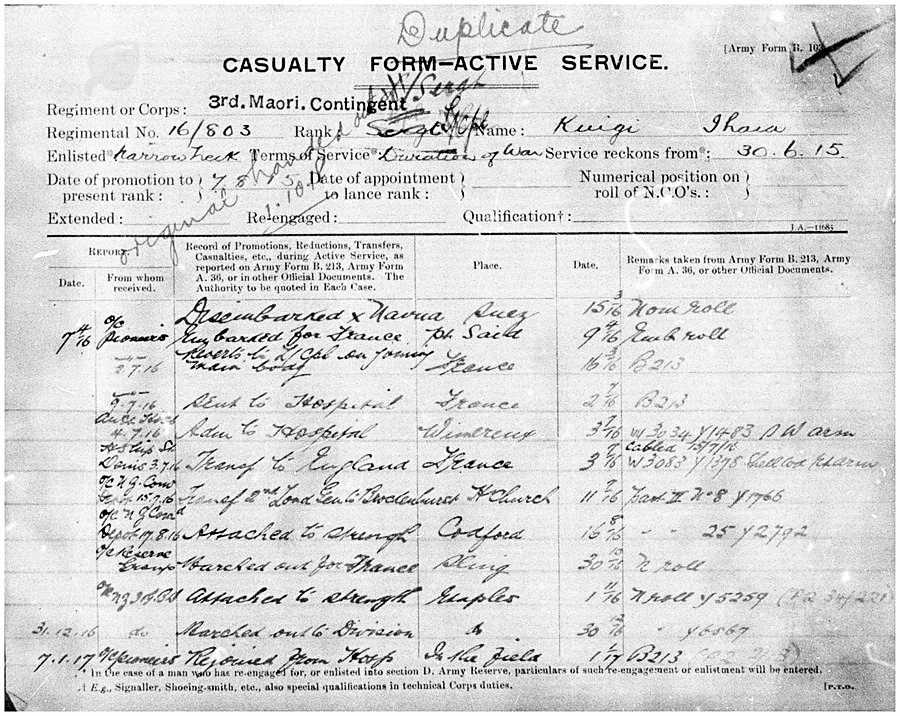 Duplicate
[Army Form B. 103
CASUALTY FORM—ACTIVE SERVICE.
Sergt
Regiment or Corps: 3rd. Maori. Contingent
Regimental No. 16/803 Rank Sergt L/Cpl Name: Kuigi Ihaia
Enlisted* Narrow Neck Terms of Service* Duration of War Service reckons from*: 30.6.15.
Date of promotion to present rank: 7.8.15 Date of appointment to lance rank: Numerical position on roll of N.C.O's.:
original handed
Extended: Re-engaged: Qualification†:
I.A.—1168
REPORT. Record of Promotions, Reductions, Transfers, Casualties, etc., during Active Service, as reported on Army Form B. 213, Army Form A. 36, or in other Official Documents. The Authority to be quoted in Each Case. Place. Date. Remarks taken from Army Form B. 213, Army Form A. 36, or other Official Documents.
Date. From whom received.
Disembarked x Navua Suez 15 3/16 Nom roll
7 4/16 o/c Pioneers Embarked for France Pt Said 9 4/16 Emb roll
2.7.16 Reverts to L/Cpl on joining main body France 16 B213
9.7.16 Sent to Hospital France 2 7/16 B213
4.7.16 Adm to Hospital Wimereux 3 7/16 W3034 Y1483 S W arm
Cabled 13/7/16
H Ship St Denis 3.7.16 Transf to England France 3 7/16 W3083 Y1378
15.7.16 Transf 2nd Lond Gen to Brockenhurst H Church 11 7/16 Part II No 8 Y1766
Depot 17.8.16 Attached to strength Codford 16 8/16 - - 25 Y2792
o/c Reserve Group Marched out for France Sling 30 10/16 N roll
Attached to strength Etaples 1 11/16 N roll Y5259
31.12.16 do Marched out to Division do 30 12/16 " Y6567
7.1.17 o/c Pioneers Rejoined from Hosp In the Field 1 1/17 B213
* In the case of a man who has re-engaged for, or enlisted into section D. Army Reserve, particulars of such re-engagement or enlistment will be entered.
† E.g., Signaller, Shoeing-smith, etc., also special qualifications in technical Corps duties. [P.T.O.